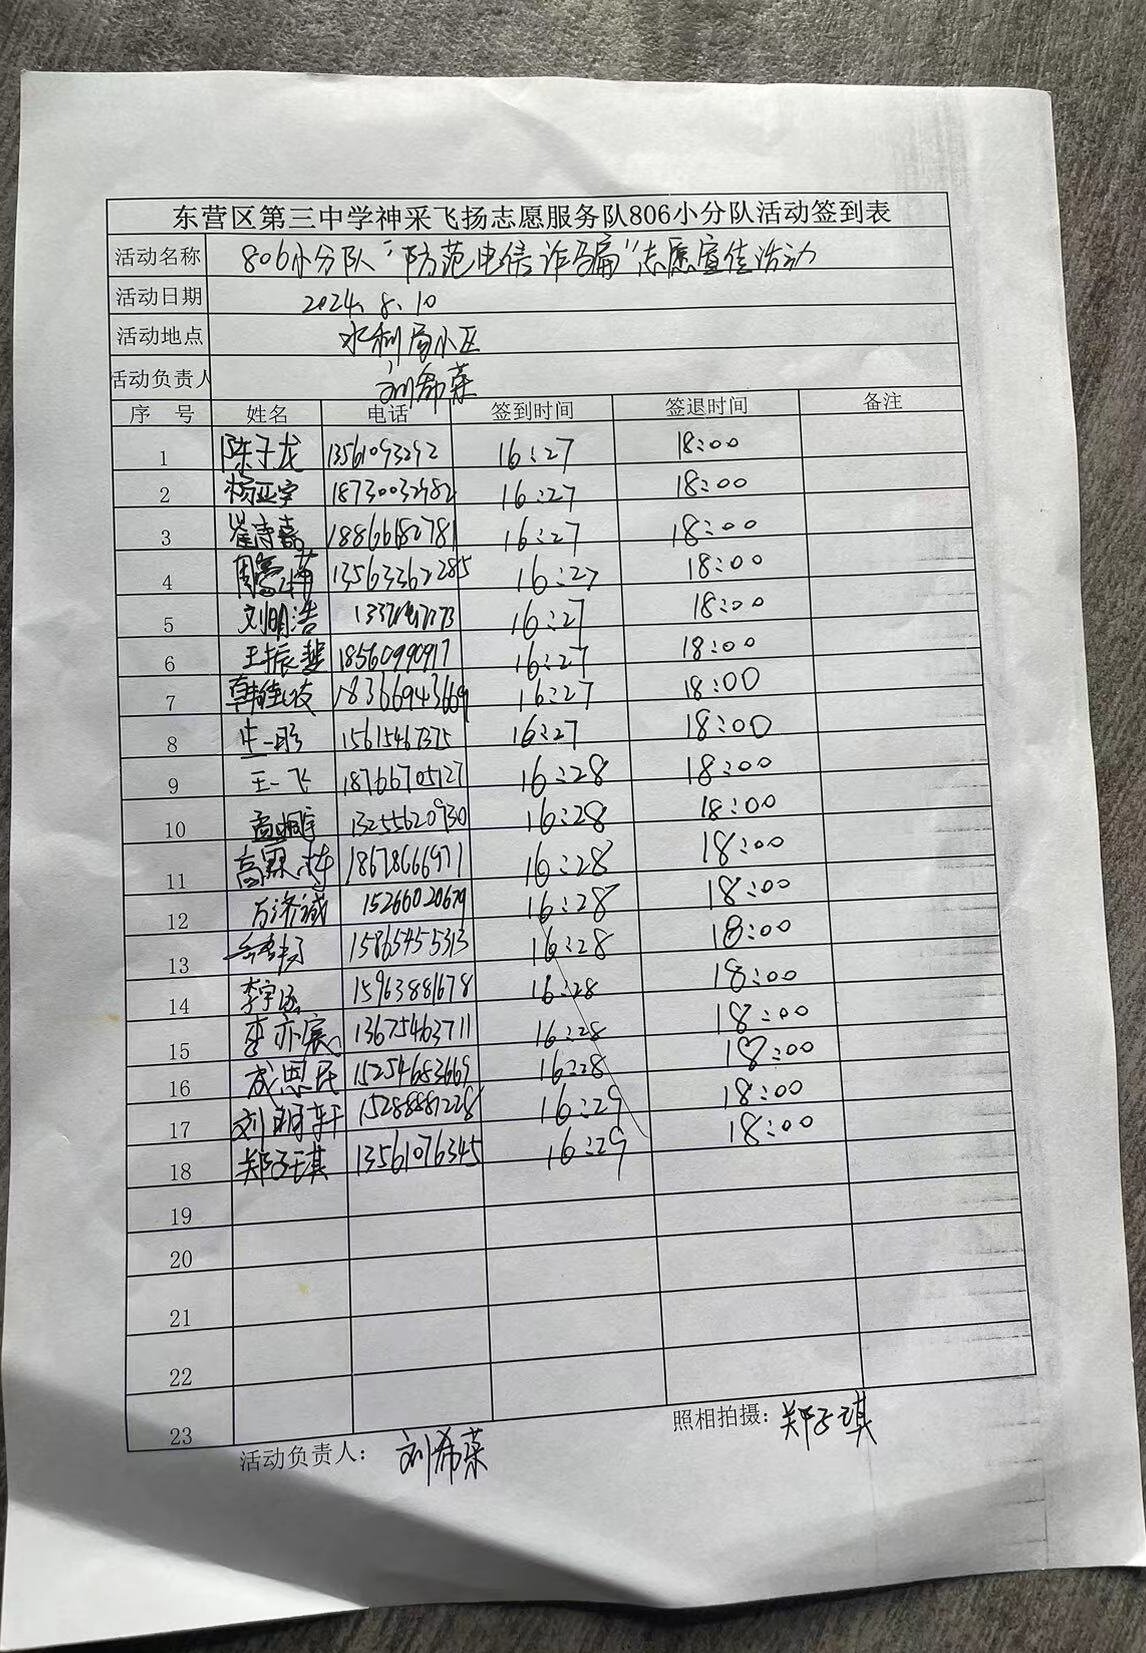 东营区第三中学神采飞扬志愿服务队806小分队活动签到表
活动名称 806小分队“防范电信诈骗”志愿宣传活动
活动日期 2024.8.10
活动地点 水利局小区
活动负责人 刘希菜
序号 姓名 电话 签到时间 签退时间 备注
1 陈子龙 13561093292 16:27 18:00
2 杨亚宇 18730032982 16:27 18:00
3 崔诗嘉 18866182781 16:27 18:00
4 13563362285 16:27 18:00
5 刘明浩 16:27 18:00
6 王振 18560990917 16:27 18:00
7 18366943669 16:27 18:00
8 15615467375 16:27 18:00
9 王一飞 18766705727 16:28 18:00
10 13255620930 16:28 18:00
11 高霖 18678666971 16:28 18:00
12 方济诚 15266020679 16:28 18:00
13 15865455313 16:28 18:00
14 李宇涵 15963881678 16:28 18:00
15 李亦宸 13675463711 16:28 18:00
16 成思民 15254683669 16:28 18:00
17 刘明轩 15288881228 16:29 18:00
18 郑子琪 13561076345 16:29 18:00
19
20
21
22
23
活动负责人: 刘希菜 照相拍摄: 郑子琪